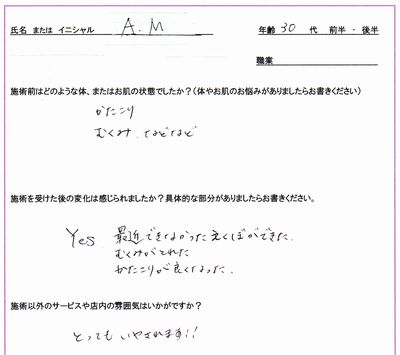 氏名 または イニシャル A.M 年齢 30 代 前半・後半
職業
施術前はどのような体、またはお肌の状態でしたか?(体やお肌のお悩みがありましたらお書きください)
かたこり
むくみ、などなど
施術を受けた後の変化は感じられましたか?具体的な部分がありましたらお書きください。
Yes 最近できなかったえくぼができた.
むくみがとれた
かたこりが良くなった.
施術以外のサービスや店内の雰囲気はいかがですか?
とってもいやされます!!